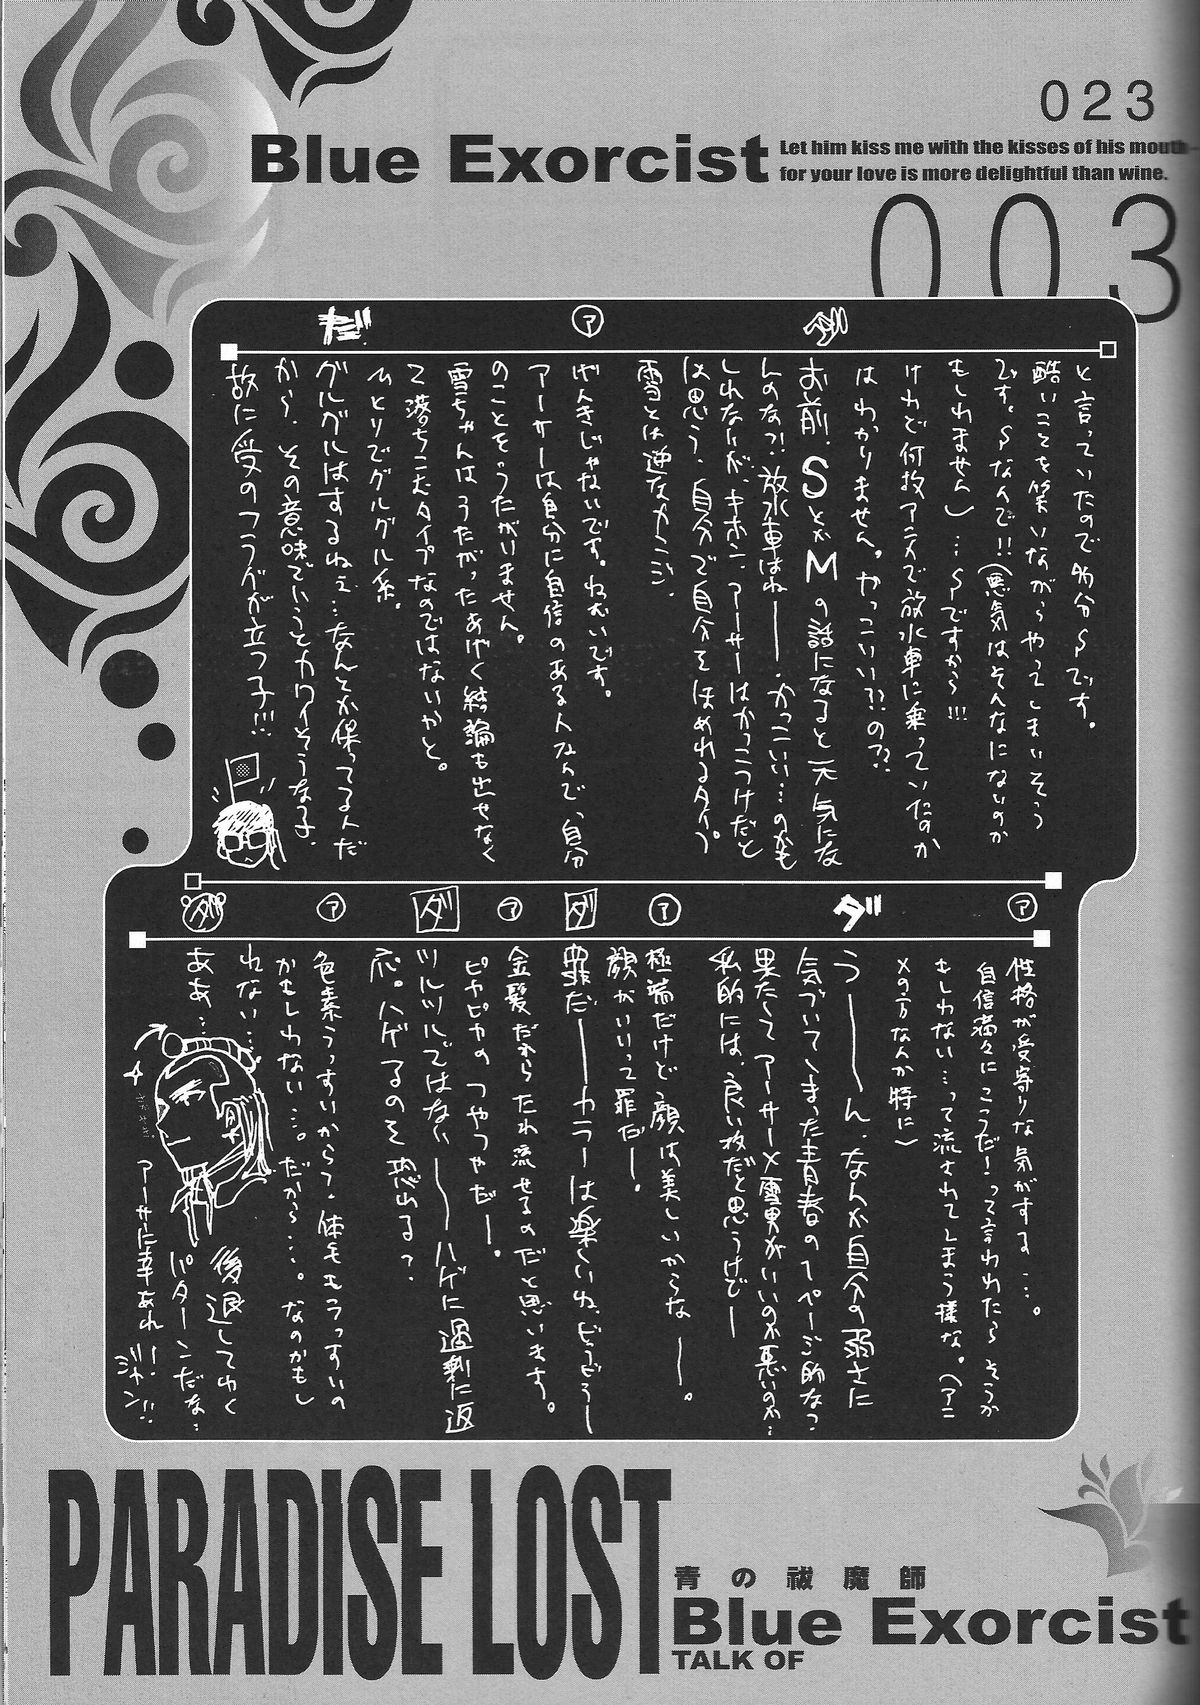 023
Blue Exorcist
Let him kiss me with the kisses of his mouth-
for your love is more delightful than wine.
003
と言っていたので多分Sです。
酷いことを笑いながらやってしまいそう
です。Sなんで!!(悪気はそんなにないのか
もしれません)…Sですから!!!
けれど何故アニメで放水車に乗っていたのか
はわかりません。やっこいい??の??
ダ
お前、SとかMの話になると元気にな
んのな?!放水車はねー、かっこいい…のかも
しれないが、キホン、アーサーはかっこつけだと
は思う、自分で自分をほめれるタイプ。
雪とは逆なカンジ。
ア
げんきじゃないです。ねむいです。
アーサーは自分に自信のある人なんで、自分
のことをうたがいません。
雪ちゃんはうたがったあげく結論も出せなく
て落ちこむタイプなのではないかと。
ひとりでグルグル系。
だ
グルグルはするねぇ…なんとか保ってるんだ
から、その意味でいうとカワイそうな子、
故に受のフラグが立つ子!!!
ア
性格が受寄りな気がする…。
自信満々にこうだ!って言われたらそうか
もしれない…って流されてしまう様な。(アニ
メの方なんか特に)
ダ
うーーん、なんか自分の弱さに
気づいてしまった青春の1ページ的なっ
果たしてアーサー×雪男がいいのか悪いのか…
私的には、良い枚だと思うけどー
ア
極論だけどう顔は美しいからなー。
顔がいいって罪だー。
ダ
罪だーーカラーは楽しいね、どうどうー
ア
金髪だからたれ流せるのだと思います。
ピカピカのつやつやだー。
ダ
ツルツルではないーーハゲに過剰に返
応。ハゲるのを恐れる?
ア
色素うっすいからって、体毛もうっすいの
かもしれない…。だから…。なのかもし
れない…。
ダ
ああ…
後退してゆく
パターンだな…
アーサーに幸あれ!!
ジャン!!
PARADISE LOST
青の祓魔師
Blue Exorcist
TALK OF